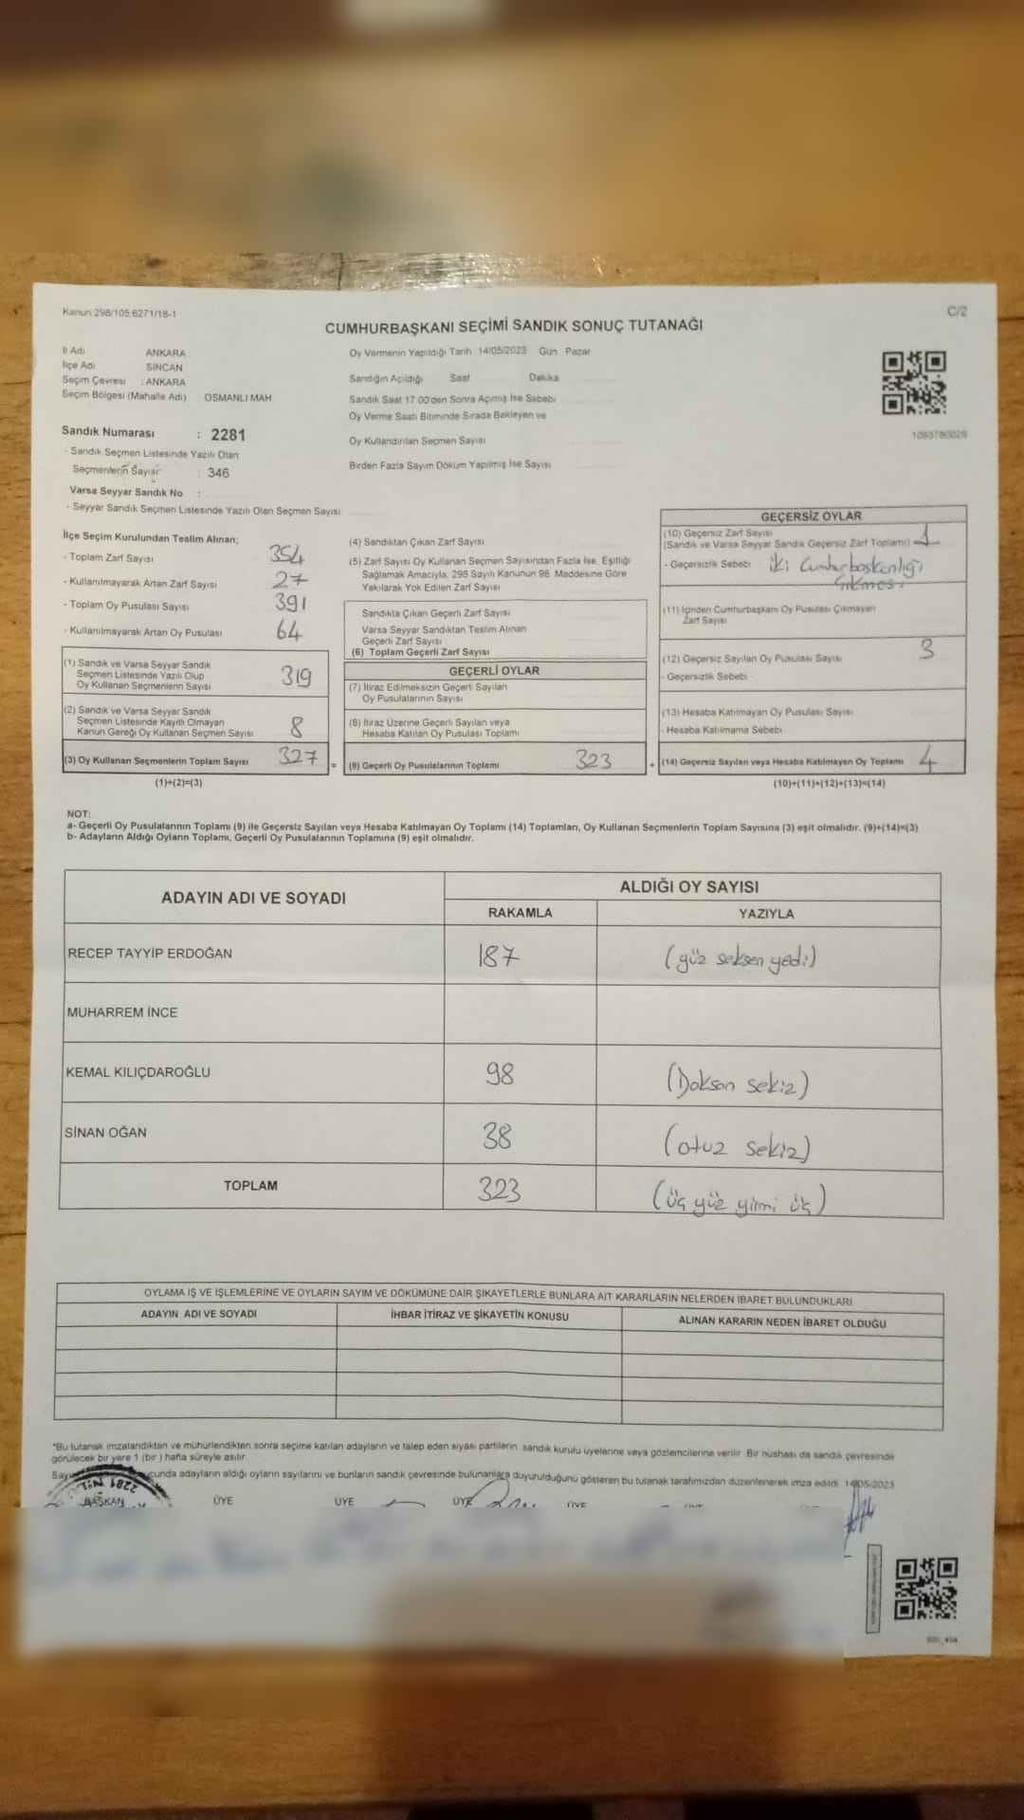 Kanun 298/105 6271/18-1
C/2
CUMHURBAŞKANI SEÇİMİ SANDIK SONUÇ TUTANAĞI
İl Adı ANKARA
İlçe Adı SİNCAN
Seçim Çevresi : ANKARA
Seçim Bölgesi (Mahalle Adı) OSMANLI MAH
Sandık Numarası : 2281
- Sandık Seçmen Listesinde Yazılı Olan
Seçmenlerin Sayısı : 346
Varsa Seyyar Sandık No :
- Seyyar Sandık Seçmen Listesinde Yazılı Olan Seçmen Sayısı
Oy Vermenin Yapıldığı Tarih 14/05/2023 Gün Pazar
Sandığın Açıldığı Saat Dakika
Sandık Saat 17.00'den Sonra Açılmış İse Sebebi
Oy Verme Saati Bitiminde Sırada Bekleyen ve
Oy Kullandırılan Seçmen Sayısı
Birden Fazla Sayım Döküm Yapılmış İse Sayısı
İlçe Seçim Kurulundan Teslim Alınan;
- Toplam Zarf Sayısı 354
- Kullanılmayarak Artan Zarf Sayısı 27
- Toplam Oy Pusulası Sayısı 391
- Kullanılmayarak Artan Oy Pusulası 64
(1) Sandık ve Varsa Seyyar Sandık
Seçmen Listesinde Yazılı Olup
Oy Kullanan Seçmenlerin Sayısı 319
(2) Sandık ve Varsa Seyyar Sandık
Seçmen Listesinde Kayıtlı Olmayan
Kanun Gereği Oy Kullanan Seçmen Sayısı 8
(3) Oy Kullanan Seçmenlerin Toplam Sayısı 327
(1)+(2)=(3)
(4) Sandıktan Çıkan Zarf Sayısı
(5) Zarf Sayısı Oy Kullanan Seçmen Sayısından Fazla İse, Eşitliği
Sağlamak Amacıyla, 298 Sayılı Kanunun 98. Maddesine Göre
Yakılarak Yok Edilen Zarf Sayısı
Sandıkta Çıkan Geçerli Zarf Sayısı
Varsa Seyyar Sandıktan Teslim Alınan
Geçerli Zarf Sayısı
(6) Toplam Geçerli Zarf Sayısı
GEÇERLİ OYLAR
(7) İtiraz Edilmeksizin Geçerli Sayılan
Oy Pusulalarının Sayısı
(8) İtiraz Üzerine Geçerli Sayılan veya
Hesaba Katılan Oy Pusulası Toplamı
= (9) Geçerli Oy Pusulalarının Toplamı 323
GEÇERSİZ OYLAR
(10) Geçersiz Zarf Sayısı
(Sandık ve Varsa Seyyar Sandık Geçersiz Zarf Toplamı) 1
- Geçersizlik Sebebi İki Cumhurbaşkanlığı
Çıkması.
(11) İçinden Cumhurbaşkanı Oy Pusulası Çıkmayan
Zarf Sayısı
(12) Geçersiz Sayılan Oy Pusulası Sayısı 3
- Geçersizlik Sebebi
(13) Hesaba Katılmayan Oy Pusulası Sayısı
- Hesaba Katılmama Sebebi
+ (14) Geçersiz Sayılan veya Hesaba Katılmayan Oy Toplamı 4
(10)+(11)+(12)+(13)=(14)
NOT:
a- Geçerli Oy Pusulalarının Toplamı (9) ile Geçersiz Sayılan veya Hesaba Katılmayan Oy Toplamı (14) Toplamları, Oy Kullanan Seçmenlerin Toplam Sayısına (3) eşit olmalıdır. (9)+(14)=(3)
b- Adayların Aldığı Oyların Toplamı, Geçerli Oy Pusulalarının Toplamına (9) eşit olmalıdır.
ADAYIN ADI VE SOYADI
ALDIĞI OY SAYISI
RAKAMLA YAZIYLA
RECEP TAYYİP ERDOĞAN 187 (yüz seksen yedi)
MUHARREM İNCE
KEMAL KILIÇDAROĞLU 98 (Doksan sekiz)
SİNAN OĞAN 38 (otuz sekiz)
TOPLAM 323 (üç yüz yirmi üç)
OYLAMA İŞ VE İŞLEMLERİNE VE OYLARIN SAYIM VE DÖKÜMÜNE DAİR ŞİKAYETLERLE BUNLARA AİT KARARLARIN NELERDEN İBARET BULUNDUKLARI
ADAYIN ADI VE SOYADI İHBAR İTİRAZ VE ŞİKAYETİN KONUSU ALINAN KARARIN NEDEN İBARET OLDUĞU
*Bu tutanak imzalandıktan ve mühürlendikten sonra seçime katılan adayların ve talep eden siyasi partilerin sandık kurulu üyelerine veya gözlemcilerine verilir. Bir nüshası da sandık çevresinde
görülecek bir yere 1 (bir) hafta süreyle asılır.
cunda adayların aldığı oyların sayılarını ve bunların sandık çevresinde bulunanlara duyurulduğunu gösteren bu tutanak tarafımızdan düzenlenerek imza edildi. 14/05/2023
BAŞKAN ÜYE ÜYE ÜYE ÜYE
2281